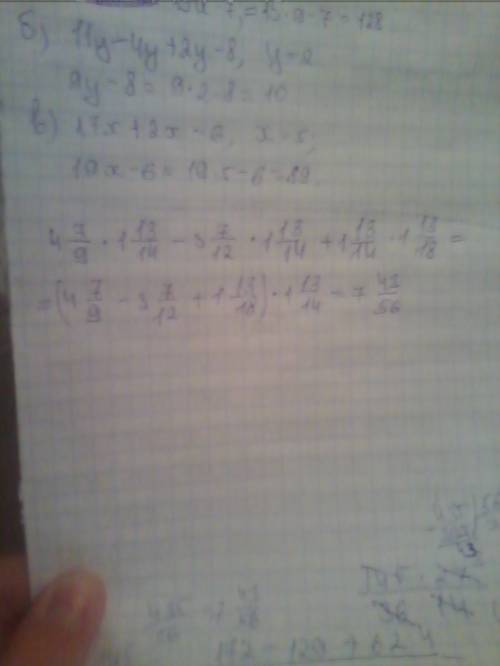 = 15 · 9 - 7 = 128
б) 11y - 4y + 2y - 8, y = 2
9y - 8 = 9 · 2 - 8 = 10
в) 17x + 2x - 6, x = 5,
19x - 6 = 19 · 5 - 6 = 89.
4 7/9 · 1 13/14 - 3 7/12 · 1 13/14 + 1 13/14 · 1 13/18 =
= (4 7/9 - 3 7/12 + 1 13/18) · 1 13/14 = 7 43/56
172 - 129 + 62